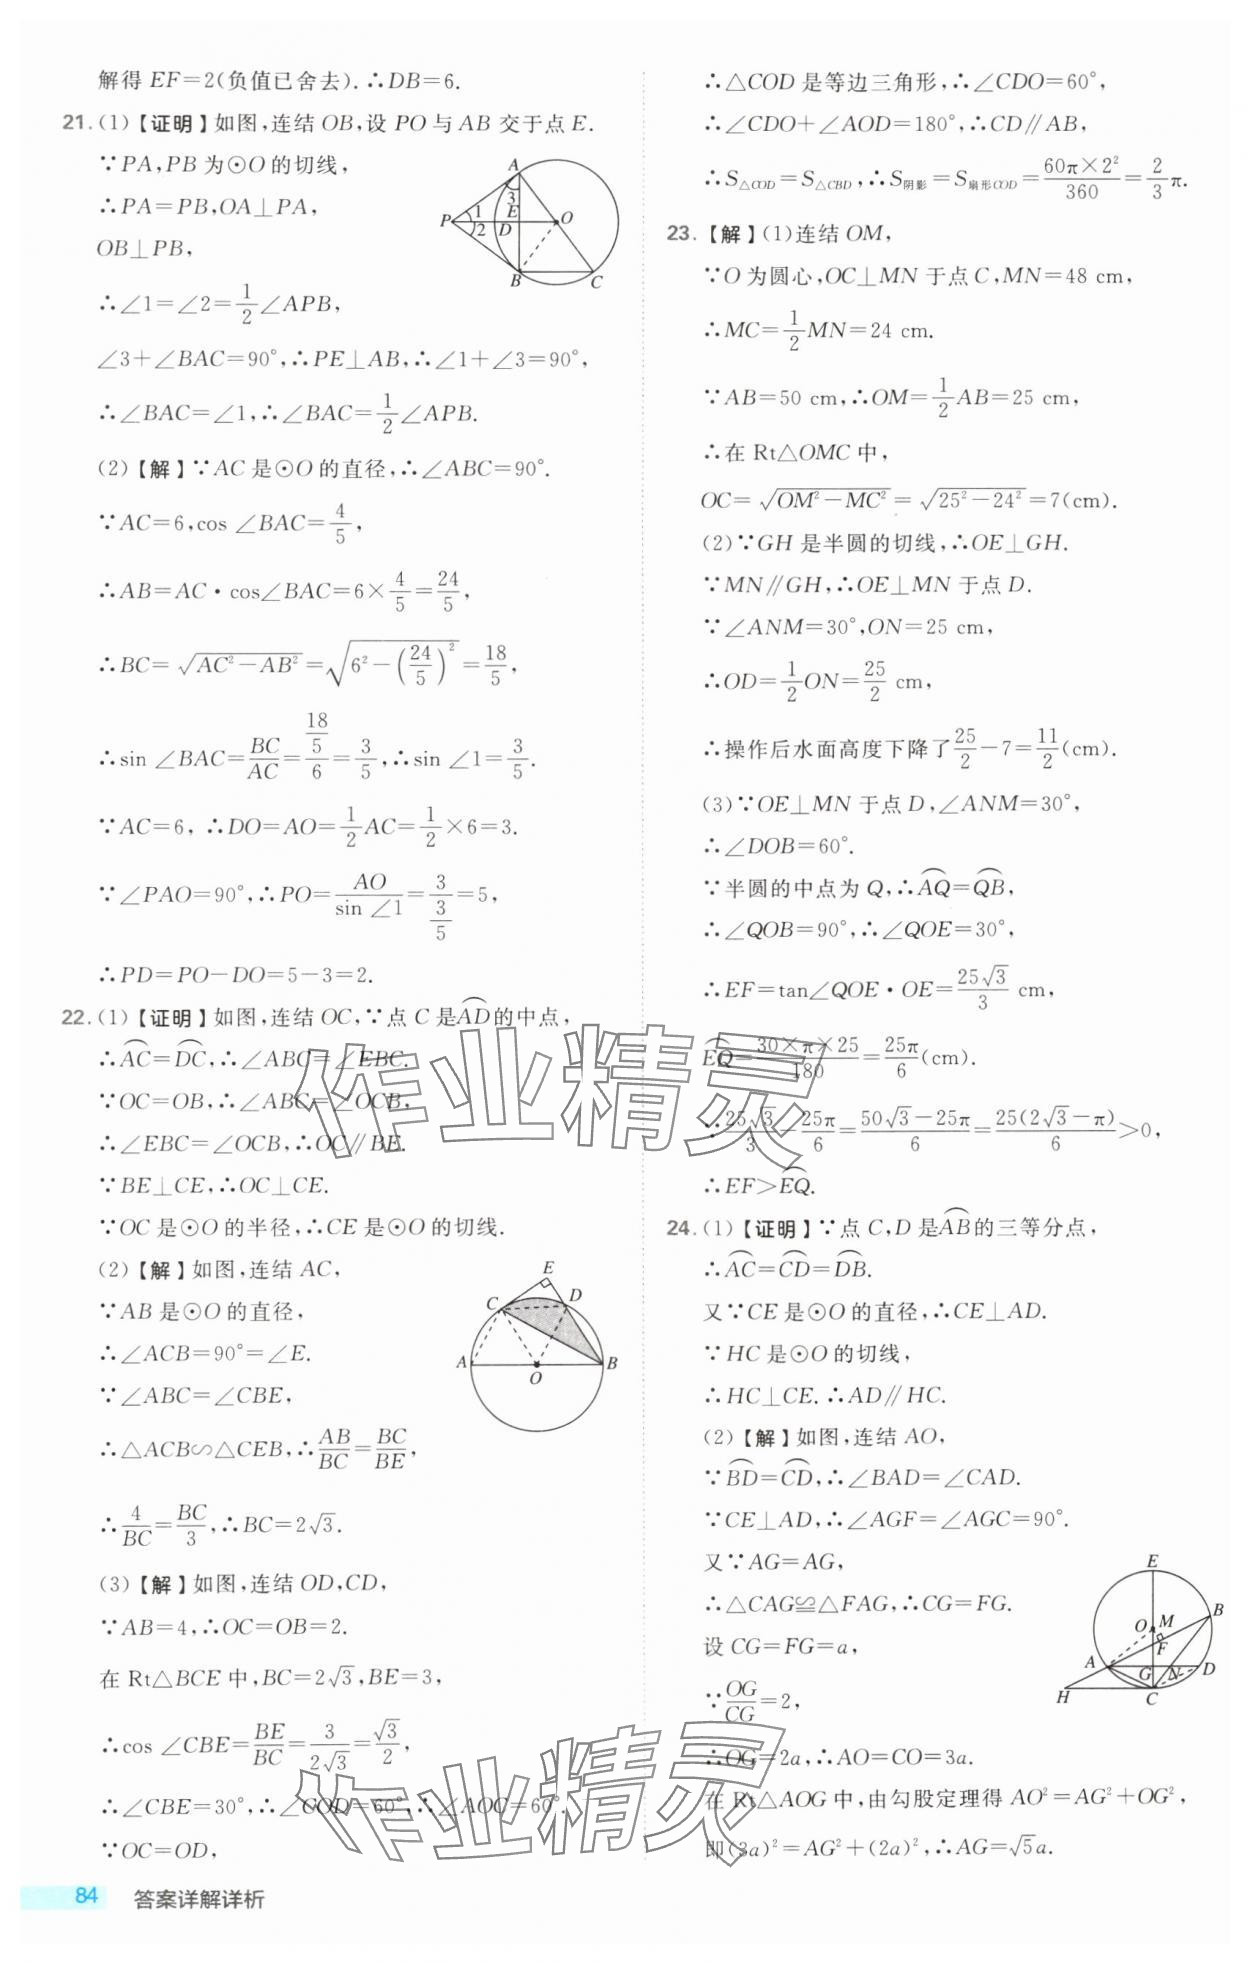 解得 EF=2(负值已舍去).∴DB=6.
21.(1)【证明】如图,连结 OB,设 PO 与 AB 交于点 E.
∵PA,PB 为⊙O 的切线,
∴PA=PB,OA⊥PA,
OB⊥PB,
∴∠1=∠2=1/2∠APB,
∠3+∠BAC=90°,∴PE⊥AB,∴∠1+∠3=90°,
∴∠BAC=∠1,∴∠BAC=1/2∠APB.
(2)【解】∵AC 是⊙O 的直径,∴∠ABC=90°.
∵AC=6,cos ∠BAC=4/5,
∴AB=AC·cos∠BAC=6×4/5=24/5,
∴BC=√(AC²-AB²)=√(6²-(24/5)²)=18/5,
∴sin ∠BAC=BC/AC=(18/5)/6=3/5,∴sin ∠1=3/5.
∵AC=6, ∴DO=AO=1/2AC=1/2×6=3.
∵∠PAO=90°,∴PO=AO/sin ∠1=3/(3/5)=5,
∴PD=PO-DO=5-3=2.
22.(1)【证明】如图,连结 OC,∵点 C 是⌒AD的中点,
∴⌒AC=⌒DC,∴∠ABC=∠EBC.
∵OC=OB,∴∠ABC=∠OCB,
∴∠EBC=∠OCB,∴OC∥BE.
∵BE⊥CE,∴OC⊥CE.
∵OC 是⊙O 的半径,∴CE 是⊙O 的切线.
(2)【解】如图,连结 AC,
∵AB 是⊙O 的直径,
∴∠ACB=90°=∠E.
∵∠ABC=∠CBE,
∴△ACB∽△CEB,∴AB/BC=BC/BE,
∴4/BC=BC/3,∴BC=2√3.
(3)【解】如图,连结 OD,CD,
∵AB=4,∴OC=OB=2.
在 Rt△BCE 中,BC=2√3,BE=3,
∴cos ∠CBE=BE/BC=3/(2√3)=√3/2,
∴∠CBE=30°,∴∠COD=60°,∴∠AOC=60°.
∵OC=OD,
A
P
1
2
3
E
D
O
B
C
E
C
D
A
O
B
84 答案详解详析
∴△COD 是等边三角形,∴∠CDO=60°,
∴∠CDO+∠AOD=180°,∴CD∥AB,
∴S△COD=S△CBD,∴S阴影=S扇形COD=(60π×2²)/360=2/3π.
23.【解】(1)连结 OM,
∵O 为圆心,OC⊥MN 于点 C,MN=48 cm,
∴MC=1/2MN=24 cm.
∵AB=50 cm,∴OM=1/2AB=25 cm,
∴在 Rt△OMC 中,
OC=√(OM²-MC²)=√(25²-24²)=7(cm).
(2)∵GH 是半圆的切线,∴OE⊥GH.
∵MN∥GH,∴OE⊥MN 于点 D.
∵∠ANM=30°,ON=25 cm,
∴OD=1/2ON=25/2 cm,
∴操作后水面高度下降了25/2-7=11/2(cm).
(3)∵OE⊥MN 于点 D,∠ANM=30°,
∴∠DOB=60°.
∵半圆的中点为 Q,∴⌒AQ=⌒QB,
∴∠QOB=90°,∴∠QOE=30°,
∴EF=tan∠QOE·OE=25√3/3 cm,
⌒EQ=(30×π×25)/180=25π/6(cm).
∵25√3/3-25π/6=(50√3-25π)/6=25(2√3-π)/6>0,
∴EF>⌒EQ.
24.(1)【证明】∵点 C,D 是⌒AB的三等分点,
∴⌒AC=⌒CD=⌒DB.
又∵CE 是⊙O 的直径,∴CE⊥AD.
∵HC 是⊙O 的切线,
∴HC⊥CE.∴AD∥HC.
(2)【解】如图,连结 AO,
∵⌒BD=⌒CD,∴∠BAD=∠CAD.
∵CE⊥AD,∴∠AGF=∠AGC=90°.
又∵AG=AG,
∴△CAG≌△FAG,∴CG=FG.
设 CG=FG=a,
∵OG/CG=2,
∴OG=2a,∴AO=CO=3a.
在 Rt△AOG 中,由勾股定理得 AO²=AG²+OG²,
即(3a)²=AG²+(2a)²,∴AG=√5a.
E
B
O
M
F
A
G
N
D
H
C
作业精灵
作业精灵